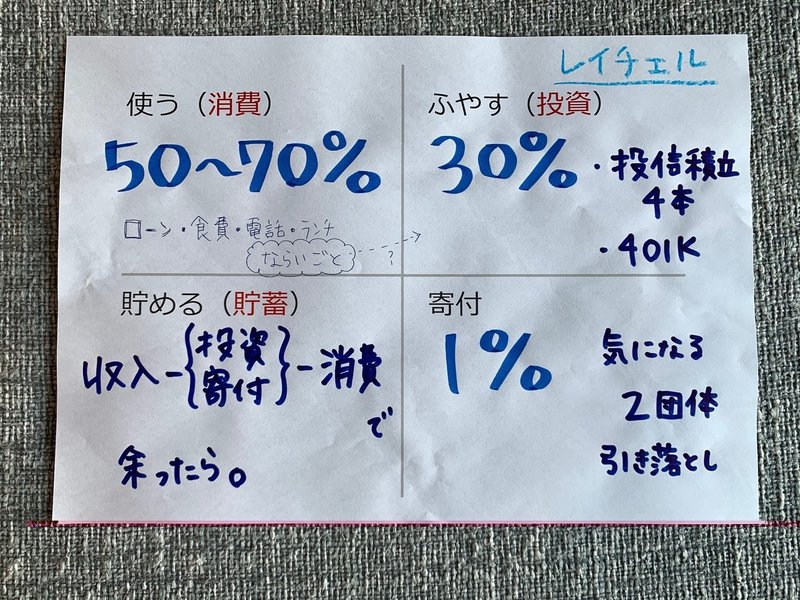 レイチェル
使う（消費）
50〜70%
ローン・食費・電話・ランチ
ならいごと
?
ふやす（投資）
30%
・投信積立
4本
・401K
貯める（貯蓄）
収入-{投資 寄付}-消費
で
余ったら。
寄付
1%
気になる
2団体
引き落とし